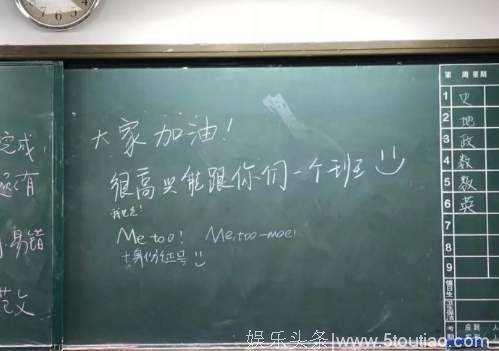 大家加油!
很高兴能跟你们一个班
我也是!
Me too!  Me too~moe!
+身份证号
完成,
还有
易错
范文
第 周星期
1 史
2 地
3 政
4 数
5 数
6 英
7
8
9
值日生
应到 人
娱乐头条|www.5toutiao.com